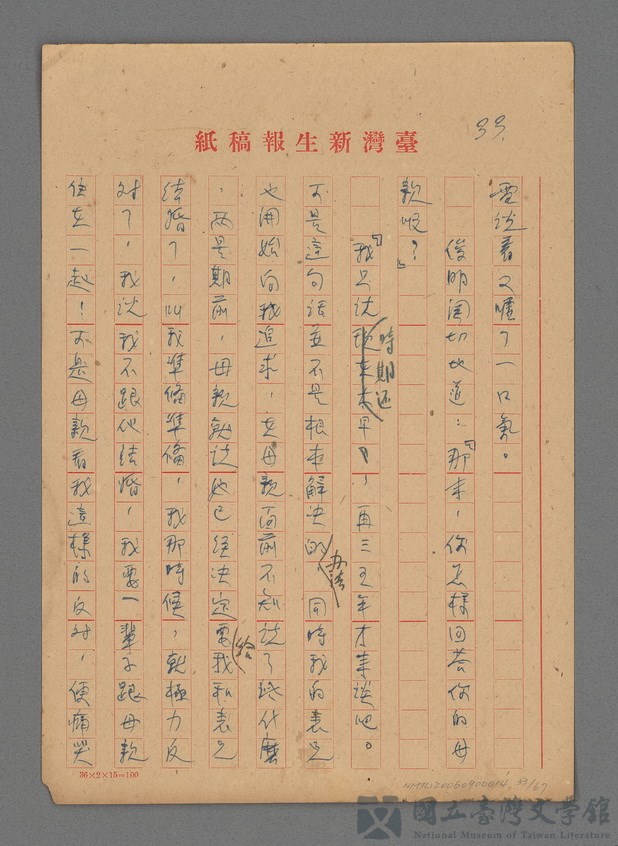 33.
臺灣新生報稿紙
雪説着又嘆了一口氣。
俊明関切地道：「那末，你怎様回荅你的母
親呢？」
「我只説時期还早，再三五年才来談吧。
不是這句話並不是根本解决的办法 同時我的表兄
也開始向我追求，在母親面前不知説了些什麼
，两星期前，母親就説她已経决定要給我和表兄
结婚了，叫我準备準備，我那時候，就極力反
对了，我説我不跟他结婚，我要一輩子跟母親
住在一起！不是母親看我這樣的反对，便痛哭
36×2×15=100
NMTL20060900014 33/67
國立臺灣文学館
National Museum of Taiwan Literature